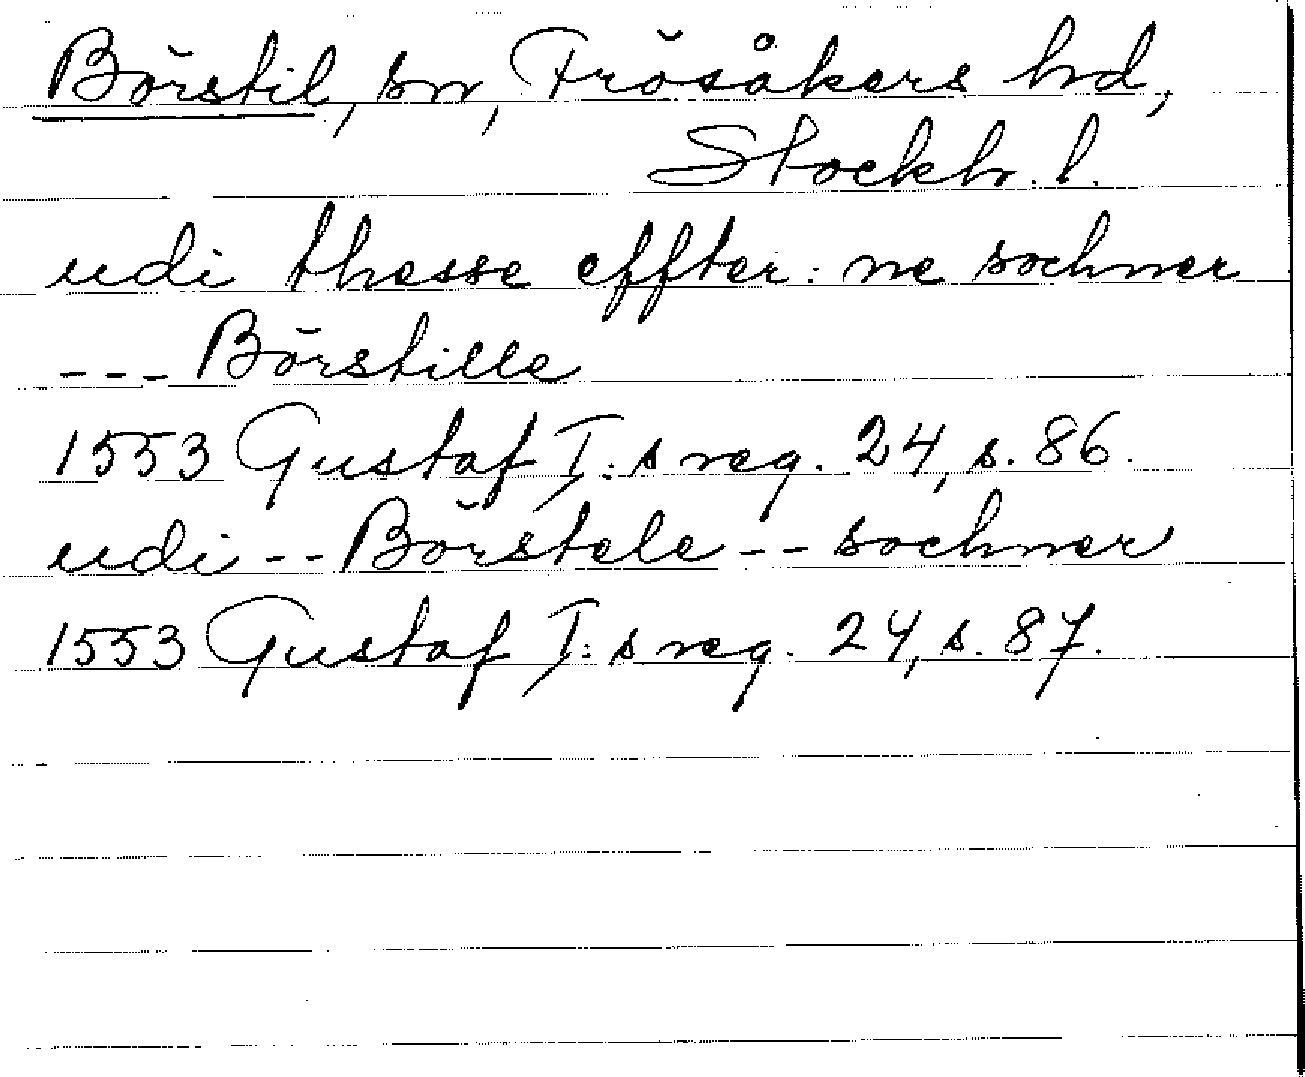 Börstil, sn, Frösåkers hd,
Stockh. l.
udi thesse effter: ne sochner
--- Börstille
1553 Gustaf I: s reg. 24, s. 86.
udi -- Börstele -- sochner
1553 Gustaf I: s reg. 24, s. 87.